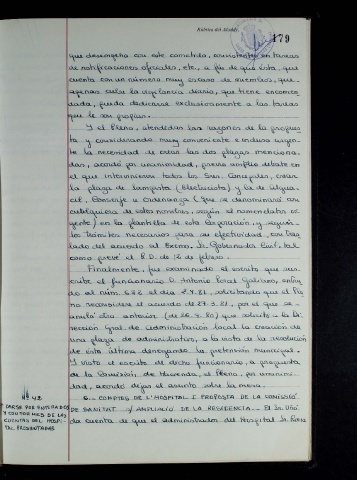 Rúbrica del Alcalde
179
que desempeña con este cometido, consistente en tareas
de notificaciones oficiales, etc., a fin de que ésta, que
cuenta con un número muy escaso de miembros, que
apenas cubre la vigilancia diaria, que tiene encomen
dada, pueda dedicarse exclusivamente a las tareas
que le son propias.
Y el Pleno, atendidas las razones de la propues
ta y considerando muy conveniente e incluso urgen
te la necesidad de crear las dos plazas menciona
das, acordó por unanimidad, previo amplio debate en
el que intervinieron todos los Sres. Concejales, crear
la plaza de Lampista (Electricista) y la de Algua-
cil, Conserje u Ordenanza (que se denominará con
cualquiera de estos nombres, según el nomenclator vi
gente) en la plantilla de esta Corporación y seguir
los trámites necesarios para su efectividad, con tras
lado del acuerdo al Excmo. Sr. Gobernador Civil, tal
como prevé el R.D. de 12 de febrero.
Finalmente, fue examinado el escrito que sus-
cribe el funcionario D. Antonio
do al núm. el día solicitando que el Ple
no reconsidere el acuerdo de 27.3.81, por el que se
anuló otro anterior (de 26.9.80) que solicitó a la Di
rección Gral. de Administración local la creación de
una plaza de administrativo, a la vista de la resolución
de esta última denegando la pretensión municipal.
Y visto el escrito de dicho funcionario a propuesta
de la Comisión de Hacienda, el Pleno, por unanimi-
dad, acordó dejar el asunto sobre la mesa.
Nº 42
DARSE POR ENTERADOS
Y CONFORMES DE LAS
CUENTAS DEL HOSPI-
TAL PRESENTADAS
6.- COMPTES DE L'HOSPITAL I PROPOSTA DE LA COMISSIÓ
DE SANITAT S/ AMPLIACIÓ DE LA RESIDENCIA.- El Sr.
da cuenta de que el administrador del Hospital Sr.